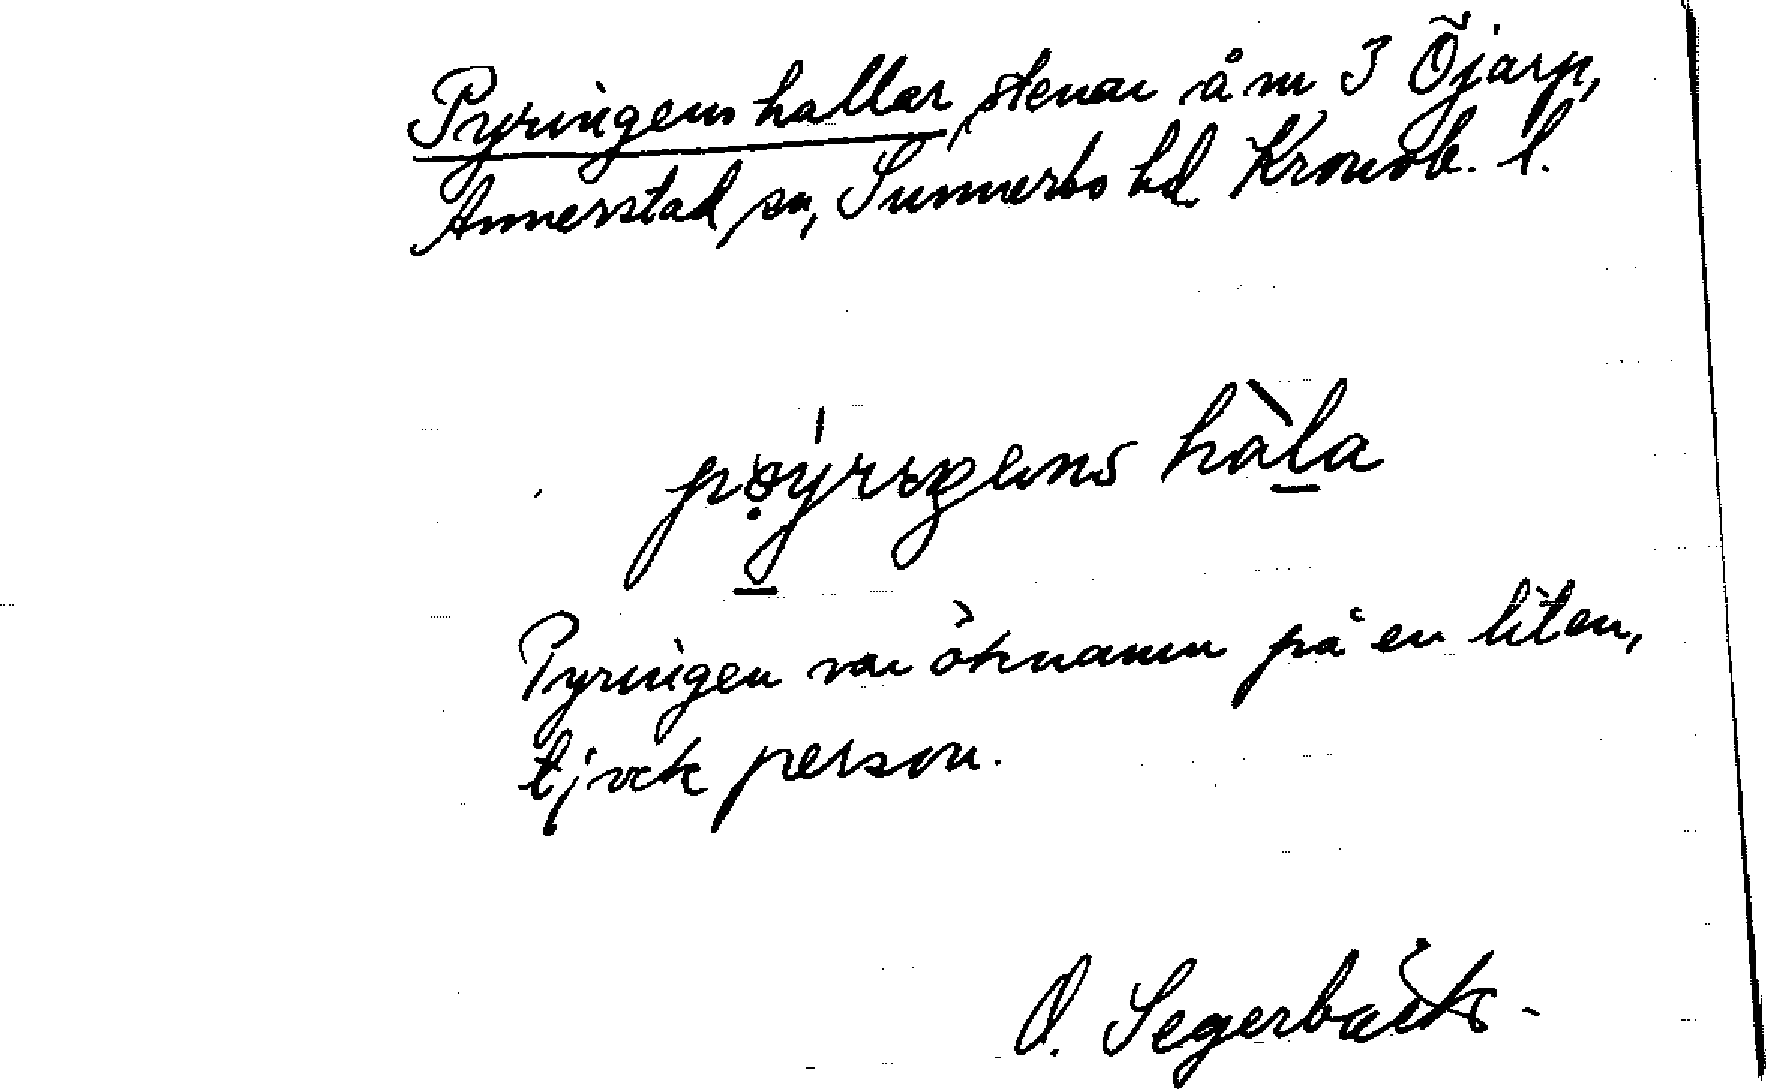 Pyringens hallar, stenar å nr 3 Öjarp,
Annerstad sn, Sunnerbo hd Kronob. l.
hàla
Pyringen var öknamn på en liten,
tjock person.
O. Segerbäck